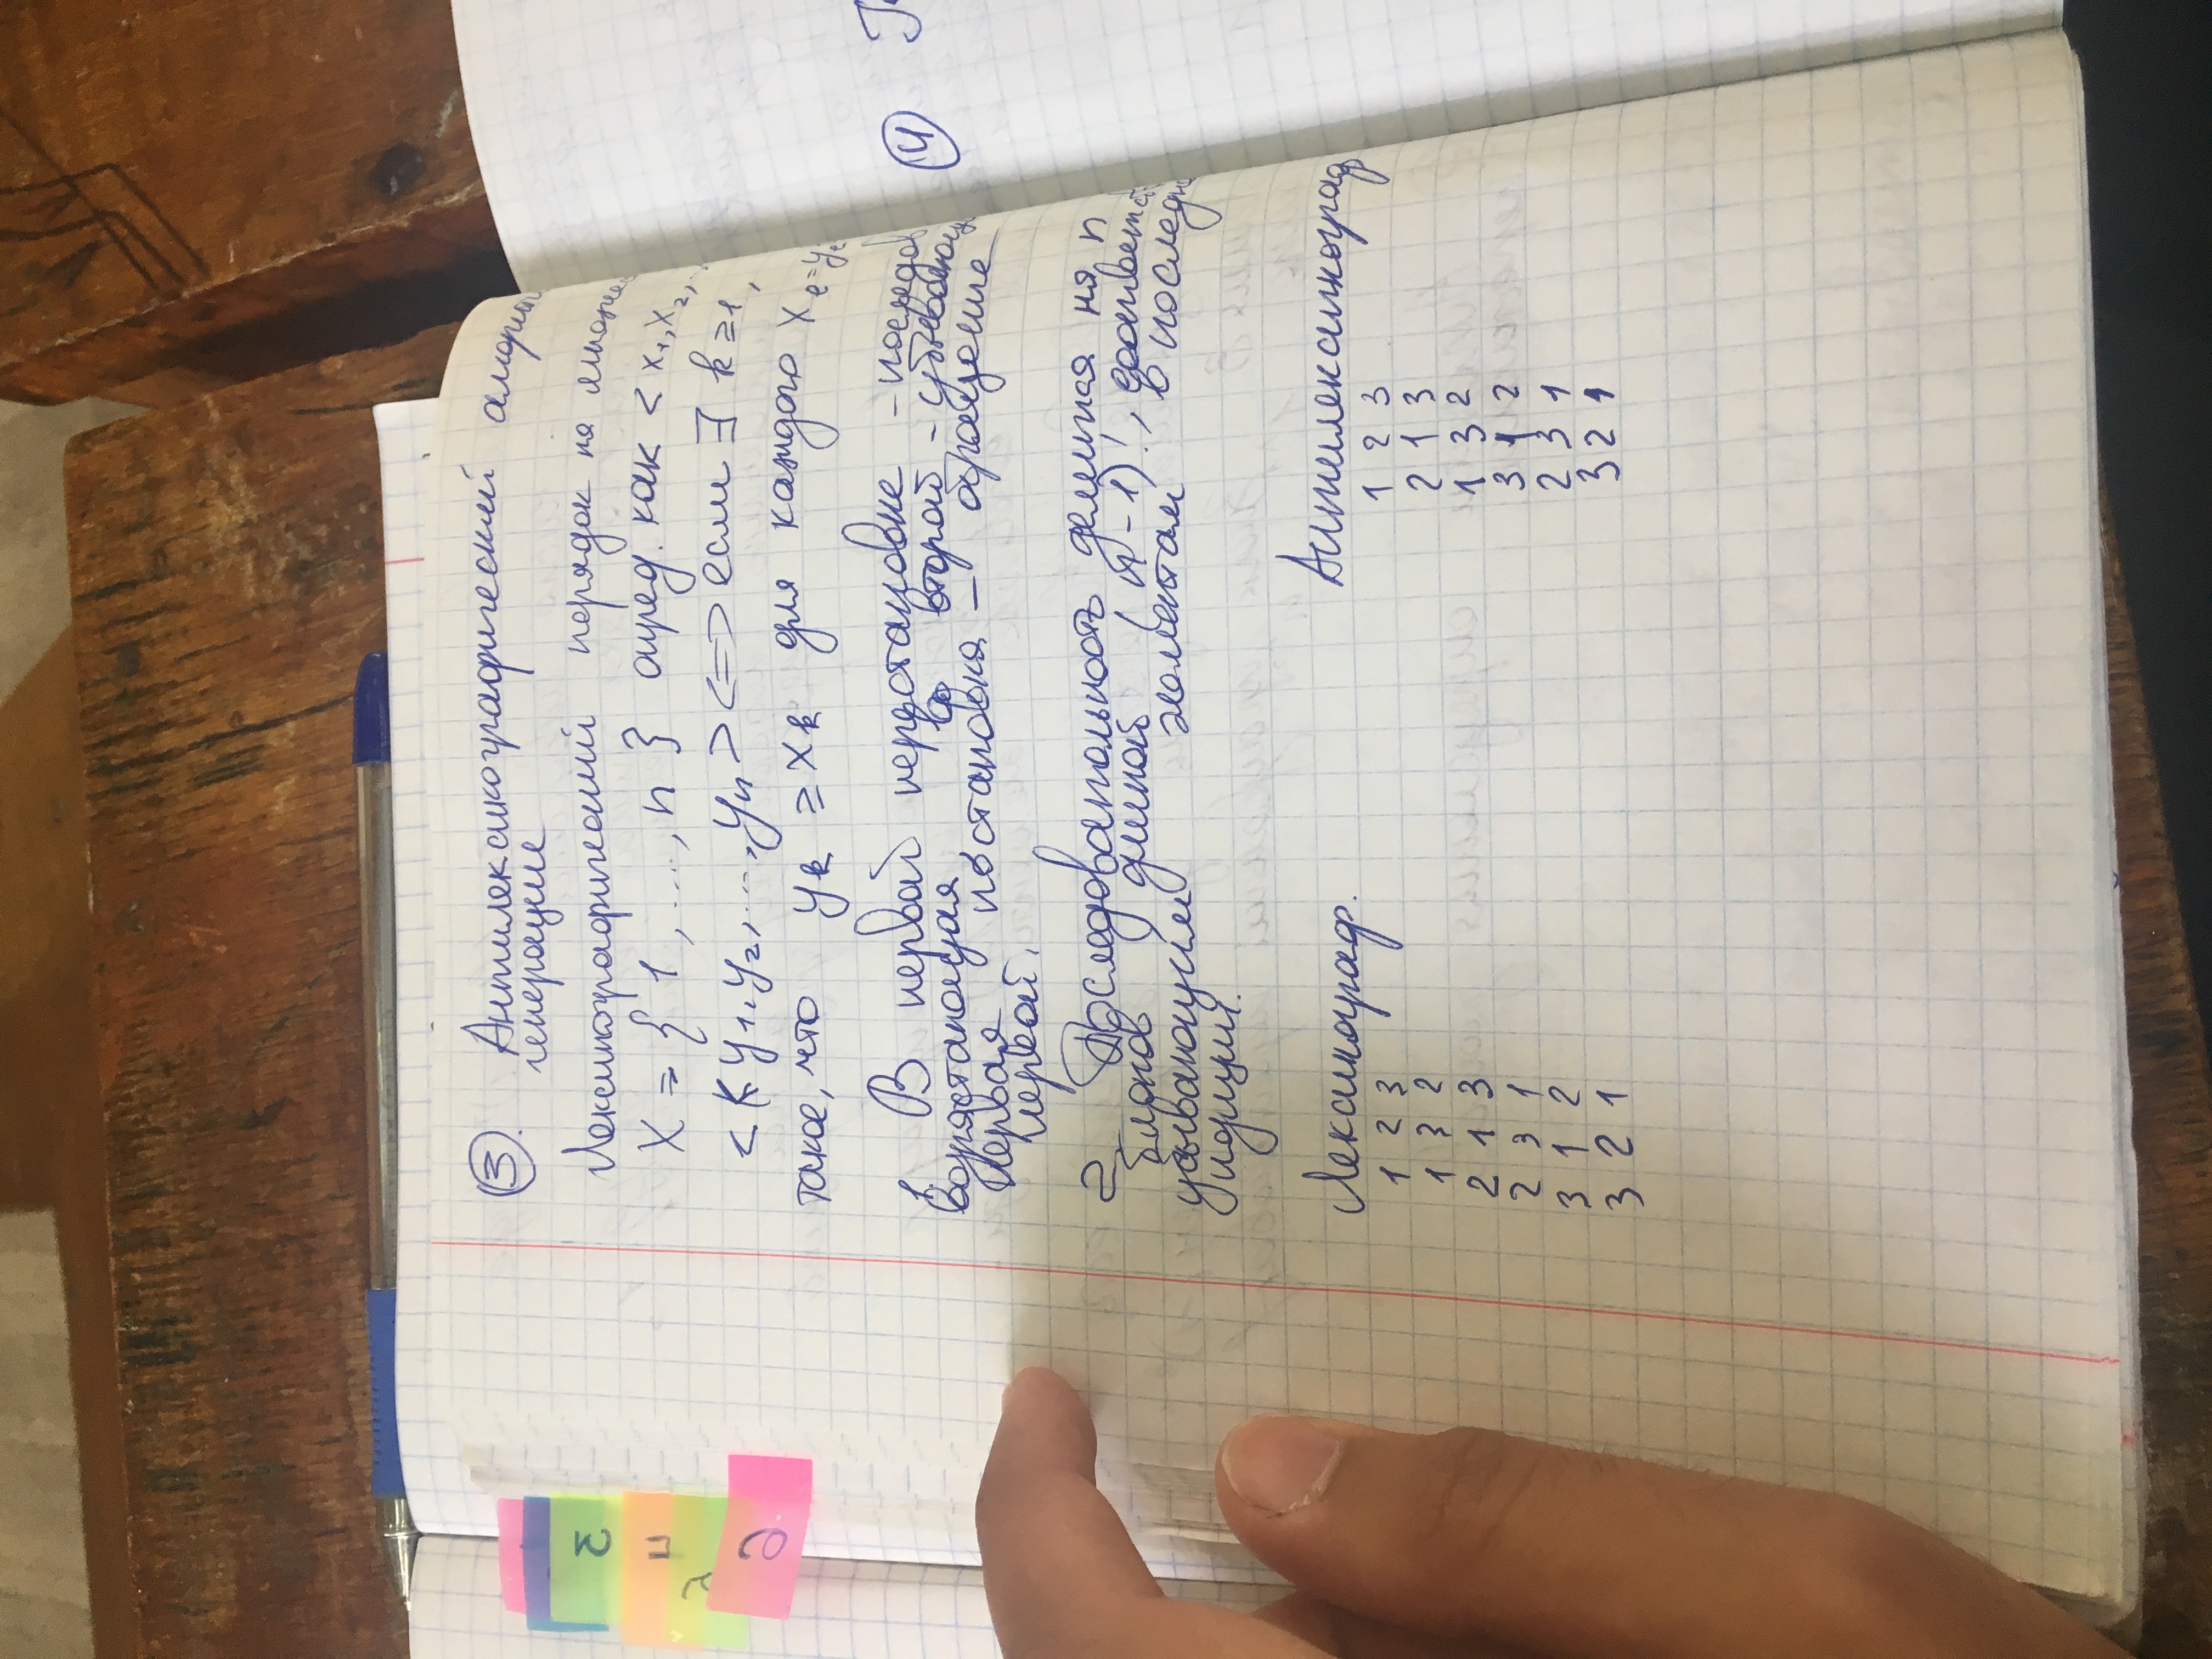 ③. Антилексикографический алгорит
генерации
Лексикографический порядок на множес
X = { 1, ..., n } опред. как < x₁, x₂, ..
< y₁, y₂, ..., yₙ > <=> если ∃ k ≥ 1,
такое, что yₖ ≥ xₖ для каждого xₑ = yₑ
1. В первой перестановке – последов
возрастающая, во второй – убывающ
первая постановка – обращение
первой.
2. Последовательность делится на n
блоков, длиной (n - 1)!, соответств
убывающим элементам в последн
позиции.
Лексикограф.
1 2 3
1 3 2
2 1 3
2 3 1
3 1 2
3 2 1
Антилексикограф
1 2 3
2 1 3
1 3 2
3 1 2
2 3 1
3 2 1
④
3
4
5
6